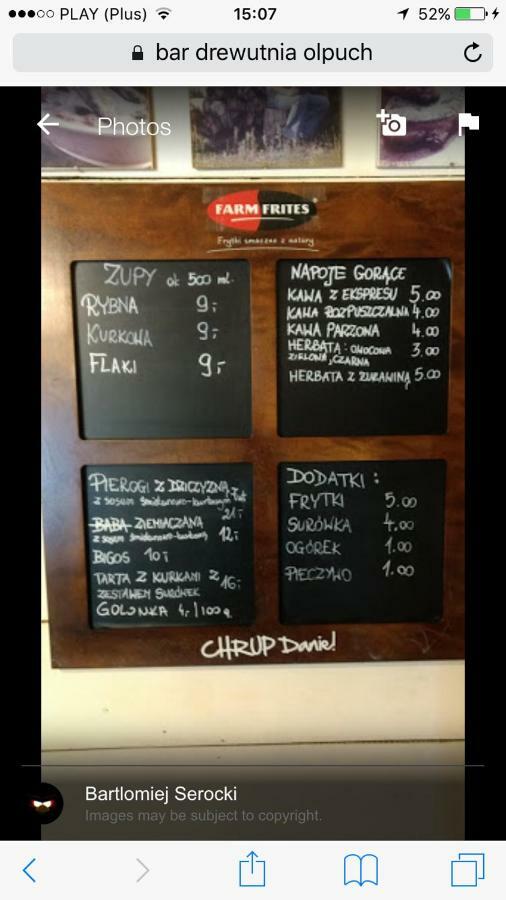 PLAY (Plus) 15:07 52%
bar drewutnia olpuch
Photos
FARM FRITES®
Frytki smaczne z natury
ZUPY ok 500 ml.
RYBNA 9,-
KURKOWA 9,-
FLAKI 9,-
NAPOJE GORĄCE
KAWA Z EKSPRESU 5.00
KAWA ROZPUSZCZALNA 4.00
KAWA PARZONA 4.00
HERBATA: OWOCOWA 3.00
ZIELONA, CZARNA
HERBATA Z ŻURAWINĄ 5.00
PIEROGI Z DZICZYZNĄ
z sosem śmietanowo-kurkowym
21,-
BABA ZIEMIACZANA
z sosem śmietanowo-kurkowym 12,-
BIGOS 10,-
TARTA Z KURKAMI Z 16,-
ZESTAWEM SURÓWEK
GOLONKA 4,-/100g
DODATKI :
FRYTKI 5.00
SURÓWKA 4.00
OGÓREK 1.00
PIECZYWO 1.00
CHRUP Danie!
Bartlomiej Serocki
Images may be subject to copyright.